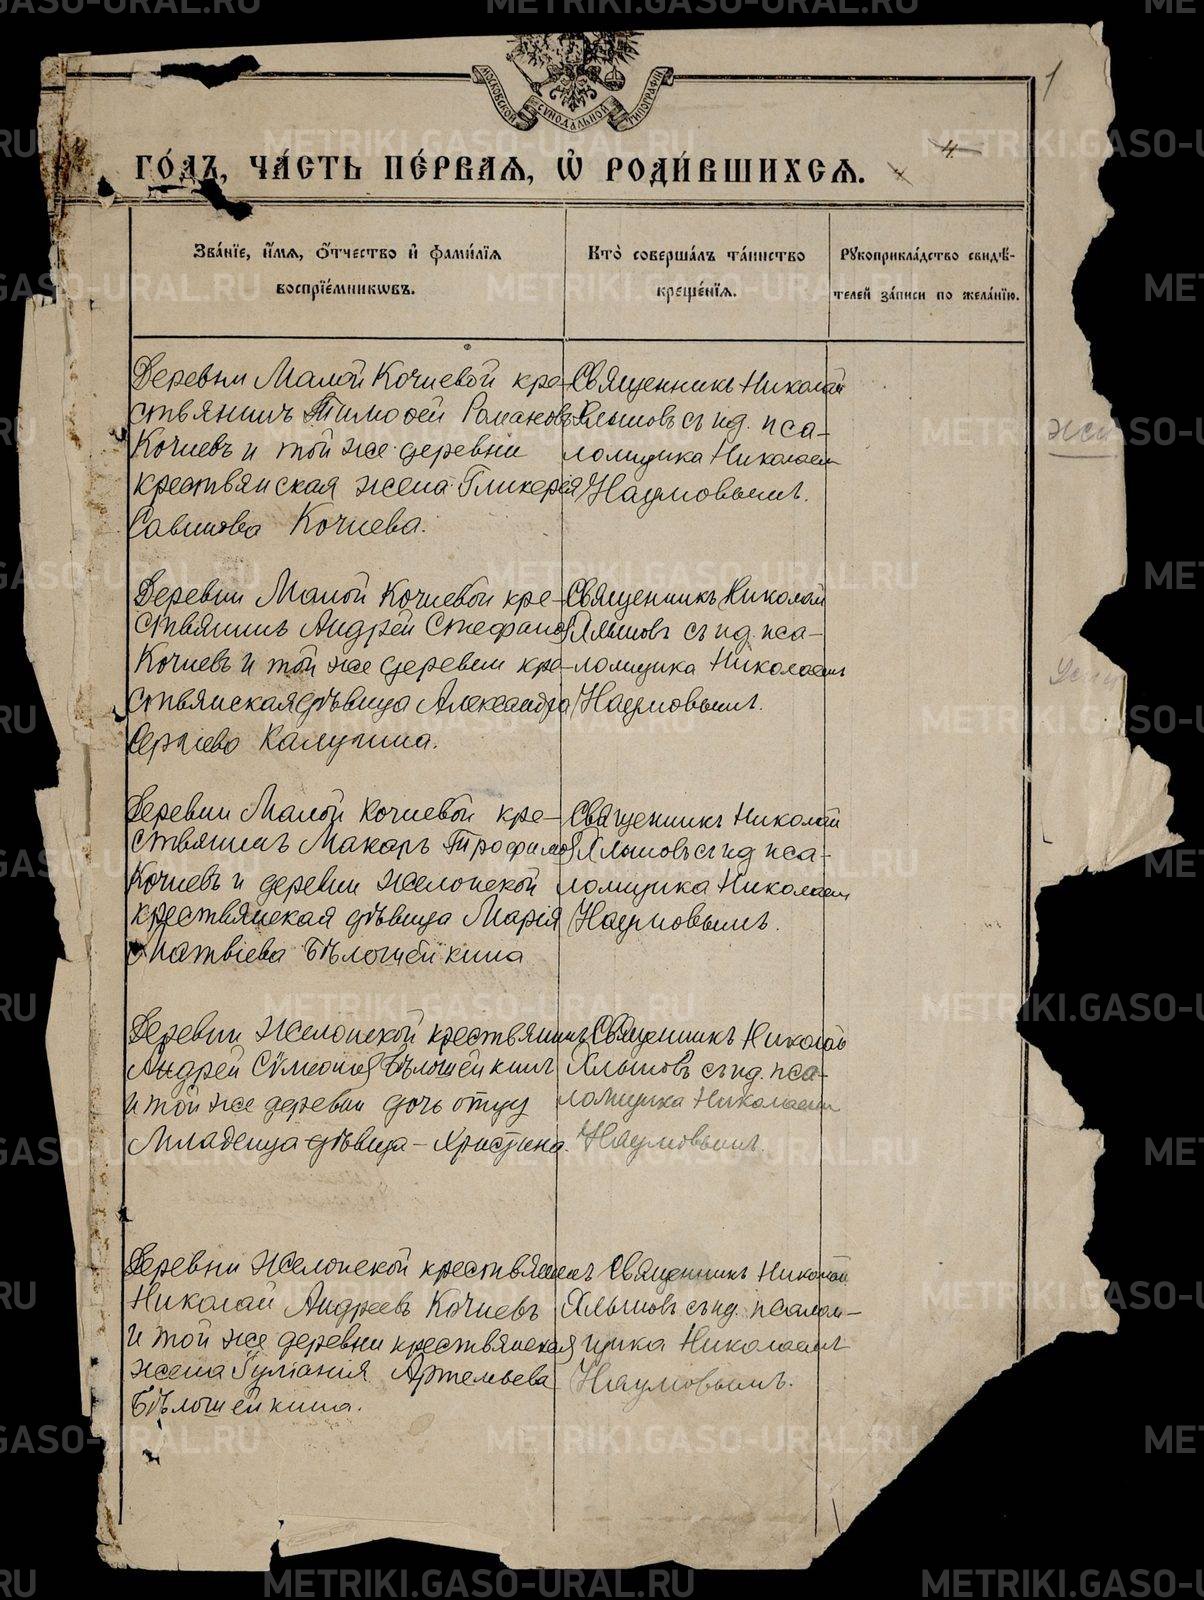 МОСКОВСКОЙ СѴНОДАЛЬНОЙ ТИПОГРАФІИ
1
4
ГО́ДЪ, ЧА́СТЬ ПЕ́РВАѦ, Ѽ РОДИ́ВШИХСѦ.
Зва́нїе, и҆́мѧ, ѻ҆́тчество и҆ фами́лїѧ
воспрїе́мникѡвъ.
Кто̀ соверша́лъ та́инство
креще́нїѧ.
Рꙋкоприкла́дство свидѣ́-
телей за́писи по жела́нїю.
Деревни Малой Кочневой кре-
ствянинъ Тимофей Романовъ
Кочневъ и той же деревни
крествянская жена Гликерія
Савинова Кочнева.
Священникъ Николай
Хлыновъ съ и.д. пса-
ломщика Николаем
Наумовымъ.
Деревни Малой Кочневой кре-
ствянинъ Андрей Стефанов
Кочневъ и той же деревни кре-
ствянская дѣвица Александра
Сергіева Калугина.
Священникъ Николай
Хлыновъ съ и.д. пса-
ломщика Николаемъ
Наумовымъ.
Деревни Малой Кочневой кре-
ствянинъ Макаръ Трофимов
Кочневъ и деревни Желонской
крествянская дѣвица Марія
Матвіева Бѣлошейкина
Священникъ Николай
Хлыновъ съ и.д. пса-
ломщика Николаем
Наумовымъ.
Деревни Желонской крествянинъ
Андрей Сѵмеонов Бѣлошейкинъ
и той же деревни дочь отцу
Младенца дѣвица - Христина.
Священникъ Николай
Хлыновъ съ и.д. пса-
ломщика Николаем
Наумовымъ.
Деревни Желонской крествянинъ
Николай Андреевъ Кочневъ
и той же деревни крествянская
жена Артемьева
Бѣлошейкина.
Священникъ Николай
Хлыновъ съ и.д. псалом-
щика Николаемъ
Наумовымъ.
METRIKI.GASO-URAL.RU